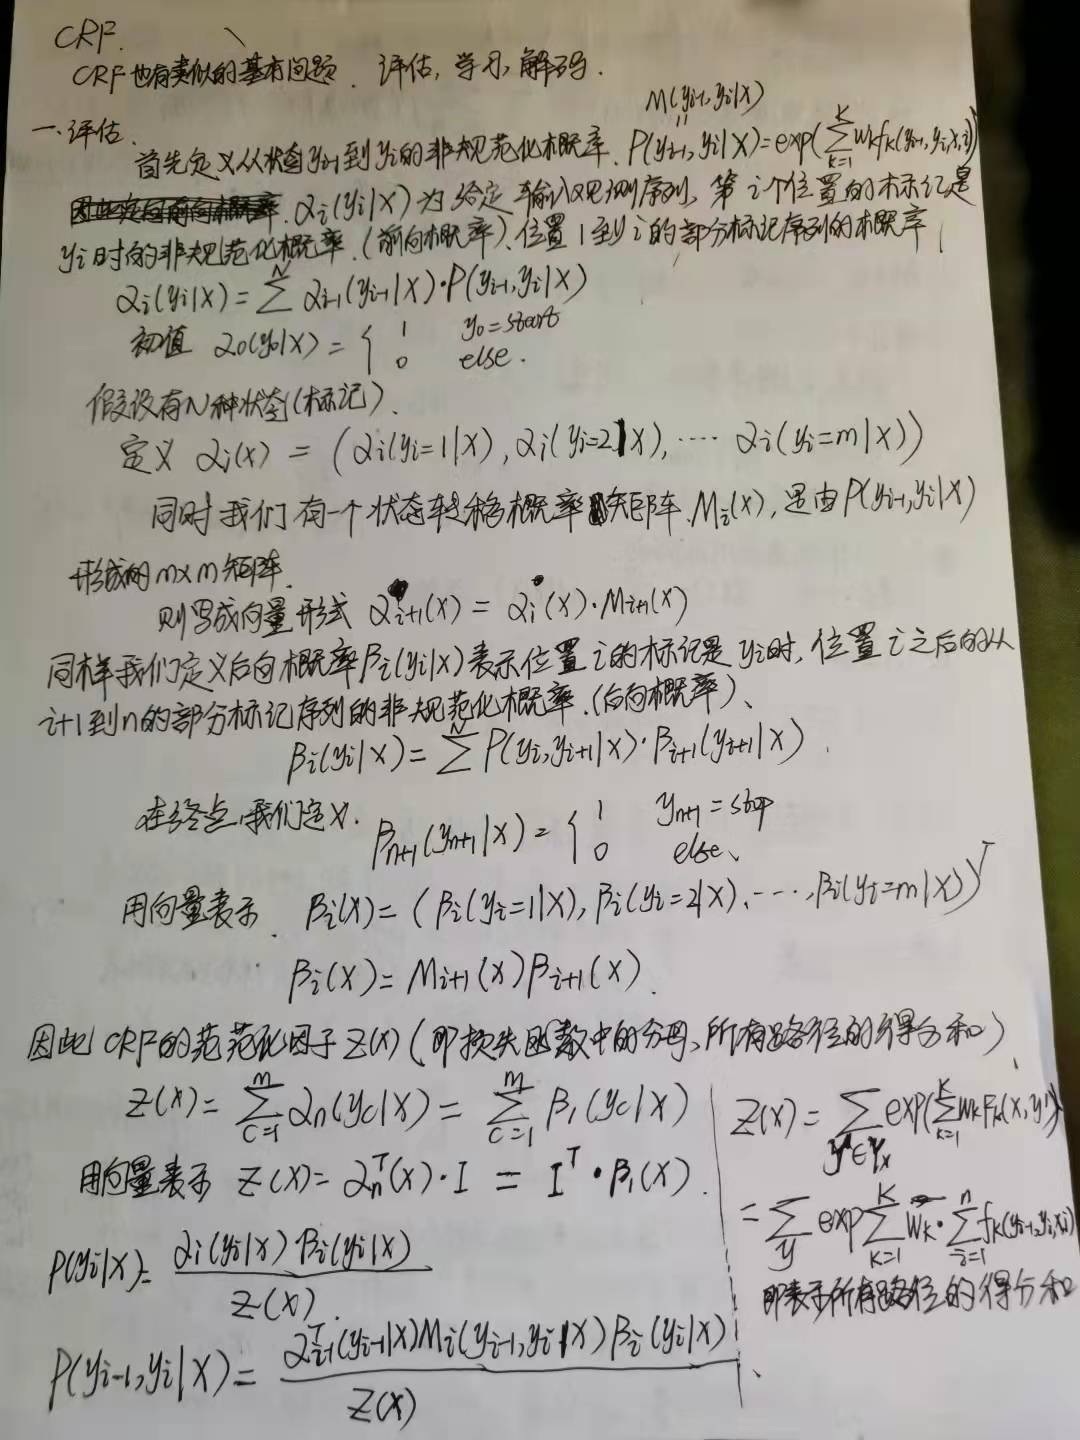 CRF.
CRF也有类似的基本问题. 评估, 学习, 解码.
M(yi-1, yi|X)
一. 评估.
首先定义从状态yi-1到yi的非规范化概率. P(yi-1, yi|X)=exp(∑_{k=1}^{K} wkfk(yi-1,yi,x,i))
αi(yi|X)为给定输入观测序列, 第i个位置的标记是
yi时的非规范化概率.(前向概率). 位置1到i的部分标记序列的概率
αi(yi|X)=∑^{N} αi-1(yi-1|X)·P(yi-1,yi|X)
初值 α0(y0|X)= { 1 y0=start
0 else.
假设有N种状态(标记).
定义 αi(x) = (αi(yi=1|X), αi(yi=2|X), ···· αi(yi=m|X))
同时我们有一个状态转移概率矩阵.Mi(x), 是由P(yi-1,yi|X)
形成的m×m矩阵.
则写成向量形式 αi+1(x) = αi(x)·Mi+1(x)
同样我们定义后向概率βi(yi|X)表示位置i的标记是yi时, 位置i之后的从
i+1到n的部分标记序列的非规范化概率.(后向概率)、
βi(yi|X)=∑^{N} P(yi,yi+1|X)·βi+1(yi+1|X).
在终点,我们定义. βn+1(yn+1|X)= { 1 yn+1=stop
0 else、
用向量表示. βi(X)=(βi(yi=1|X), βi(yi=2|X), ····, βi(yi=m|X))^T
βi(X)=Mi+1(X)βi+1(X).
因此CRF的范范化因子Z(X)(即损失函数中的分母、所有路径的得分和)
Z(X)=∑_{c=1}^{m} αn(yc|X)=∑_{c=1}^{m} β1(yc|X)
用向量表示 Z(X)=αn^T(X)·I = I^T·β1(X).
P(yi|X)= αi(yi|X)·βi(yi|X) / Z(X).
P(yi-1,yi|X)= α^T i-1(yi-1|X)Mi(yi-1,yi|X)βi(yi|X) / Z(X)
Z(X)=∑_{y'∈Yx} exp(∑_{k=1}^{K} wkFk(X,y'))
=∑_{y} exp∑_{k=1}^{K} wk·∑_{i=1}^{n} fk(yi-1,yi,x,i)
即表示所有路径的得分和